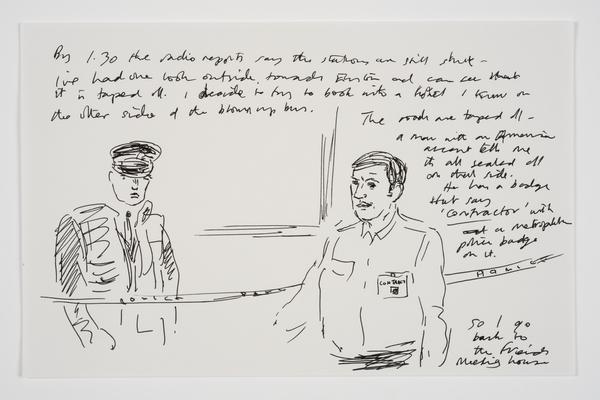 By 1.30 the radio reports say the stations are still shut –
I've had one look outside, towards Euston and can see that
it is taped off. I decide to try to book into a hotel I know on
the other side of the blown up bus.
The roads are taped off –
a man with an Armenian
accent tells me
it's all sealed off
on that side.
He has a badge
that says
'contractor' with
a metropolitan
police badge
on it.
CONTRACT
POLICE
POLICE
So I go
back to
the Friends
Meeting house